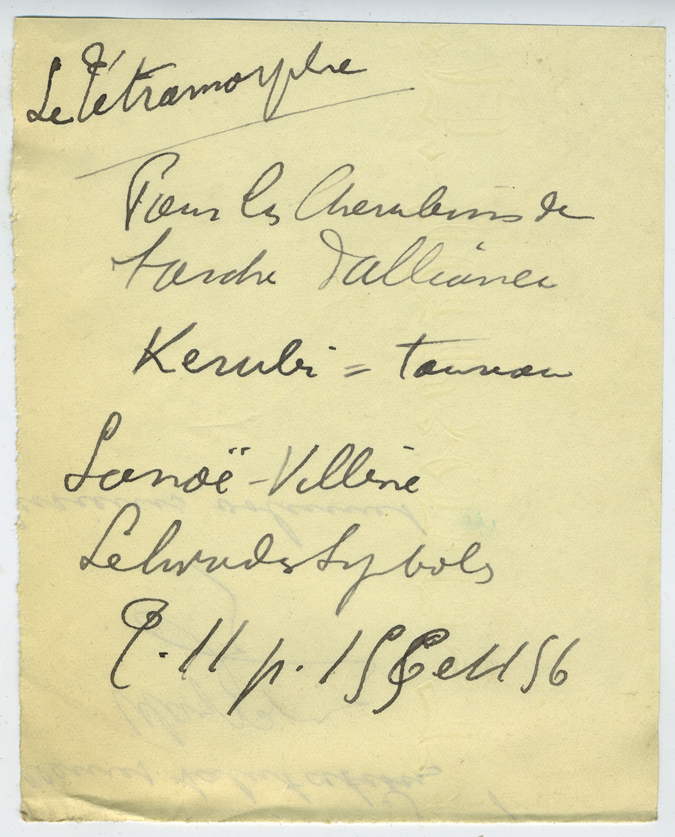 Le Tétramorphe
Pour les Cherubims de
l'arche d'alliance
Kerubi = taureau
Lanoë-Villène
Le livre des Symboles
T. II p. 155 et 156